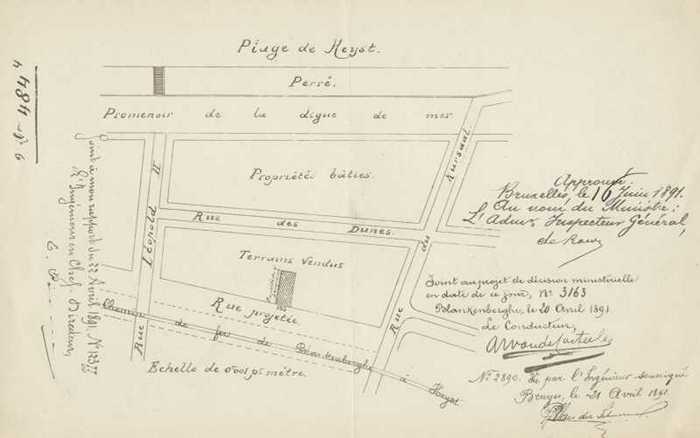 Plage de Heyst.
Perré.
Promenoir de la digue de mer
Propriétés bâties.
Rue Léopold II
Rue du Kursaal
Rue des Dunes.
Terrains Vendus
Rue projetée
Chemin de fer de Blankenberghe à Heyst
Echelle de
mètre.
4484
Joint à mon rapport du 22 Avril 1891, Nº
L'Ingénieur en Chef Directeur,
Approuvé.
Bruxelles, le 16 Juin 1891.
Au nom du Ministre:
L'Admr Inspecteur Général,
Joint au projet de décision ministérielle
en date de ce jour, Nº 3163
Blankenberghe, le 20 Avril 1891
Le Conducteur,
Nº 2890. Vu par l'Ingénieur soussigné
Bruges, le 21 Avril 1891